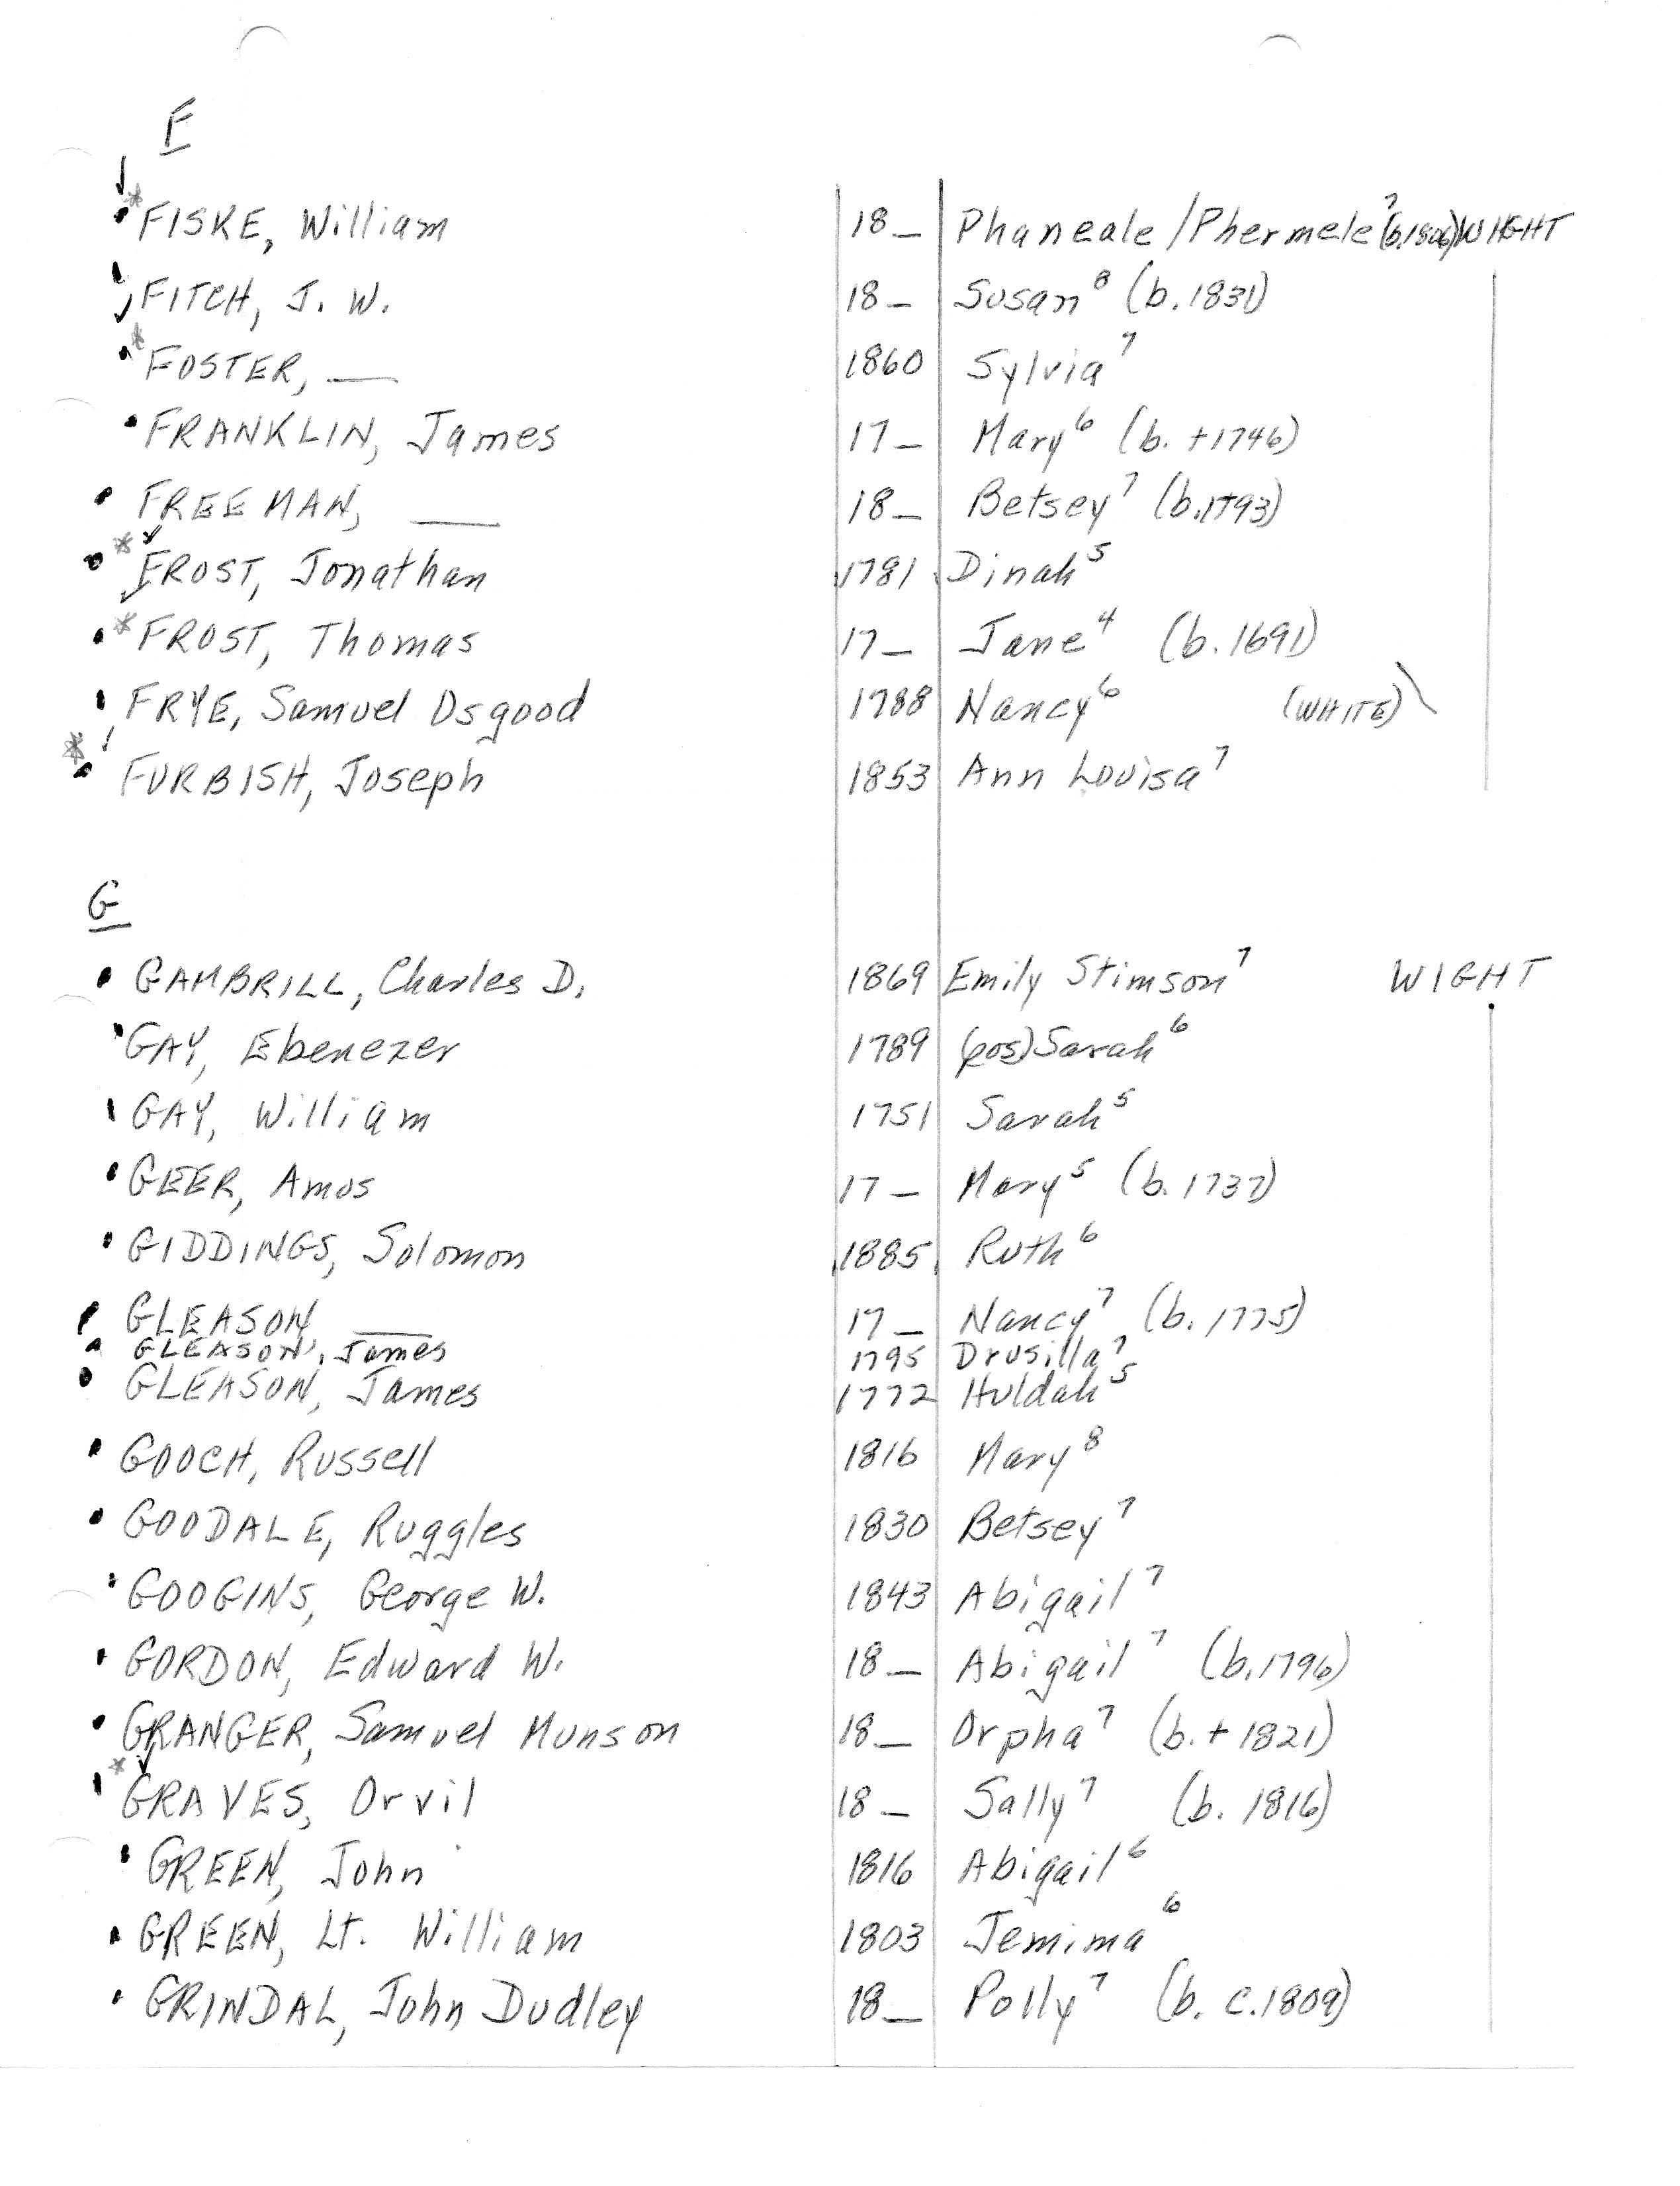 F
* FISKE, William 18_ Phaneale/Phermele⁷ (b.1806) WIGHT
FITCH, J. W. 18_ Susan⁸ (b. 1831)
* FOSTER, — 1860 Sylvia⁷
FRANKLIN, James 17_ Mary⁶ (b. +1746)
FREEMAN, — 18_ Betsey⁷ (b.1793)
* FROST, Jonathan 1781 Dinah⁵
* FROST, Thomas 17_ Jane⁴ (b. 1691)
FRYE, Samuel Osgood 1788 Nancy⁶ (WHITE)
* FURBISH, Joseph 1853 Ann Louisa⁷
G
GAMBRILL, Charles D. 1869 Emily Stimson⁷ WIGHT
GAY, Ebenezer 1789 (pos) Sarah⁶
GAY, William 1751 Sarah⁵
GEER, Amos 17_ Mary⁵ (b. 1737)
GIDDINGS, Solomon 1885 Ruth⁶
GLEASON, — 17_ Nancy⁷ (b. 1775)
GLEASON, James 1795 Drusilla⁷
GLEASON, James 1772 Huldah⁵
GOOCH, Russell 1816 Mary⁸
GOODALE, Ruggles 1830 Betsey⁷
GOOGINS, George W. 1843 Abigail⁷
GORDON, Edward W. 18_ Abigail⁷ (b.1796)
GRANGER, Samuel Munson 18_ Orpha⁷ (b. + 1821)
* GRAVES, Orvil 18_ Sally⁷ (b. 1816)
GREEN, John 1816 Abigail⁶
GREEN, Lt. William 1803 Jemima⁶
GRINDAL, John Dudley 18_ Polly⁷ (b. c.1809)